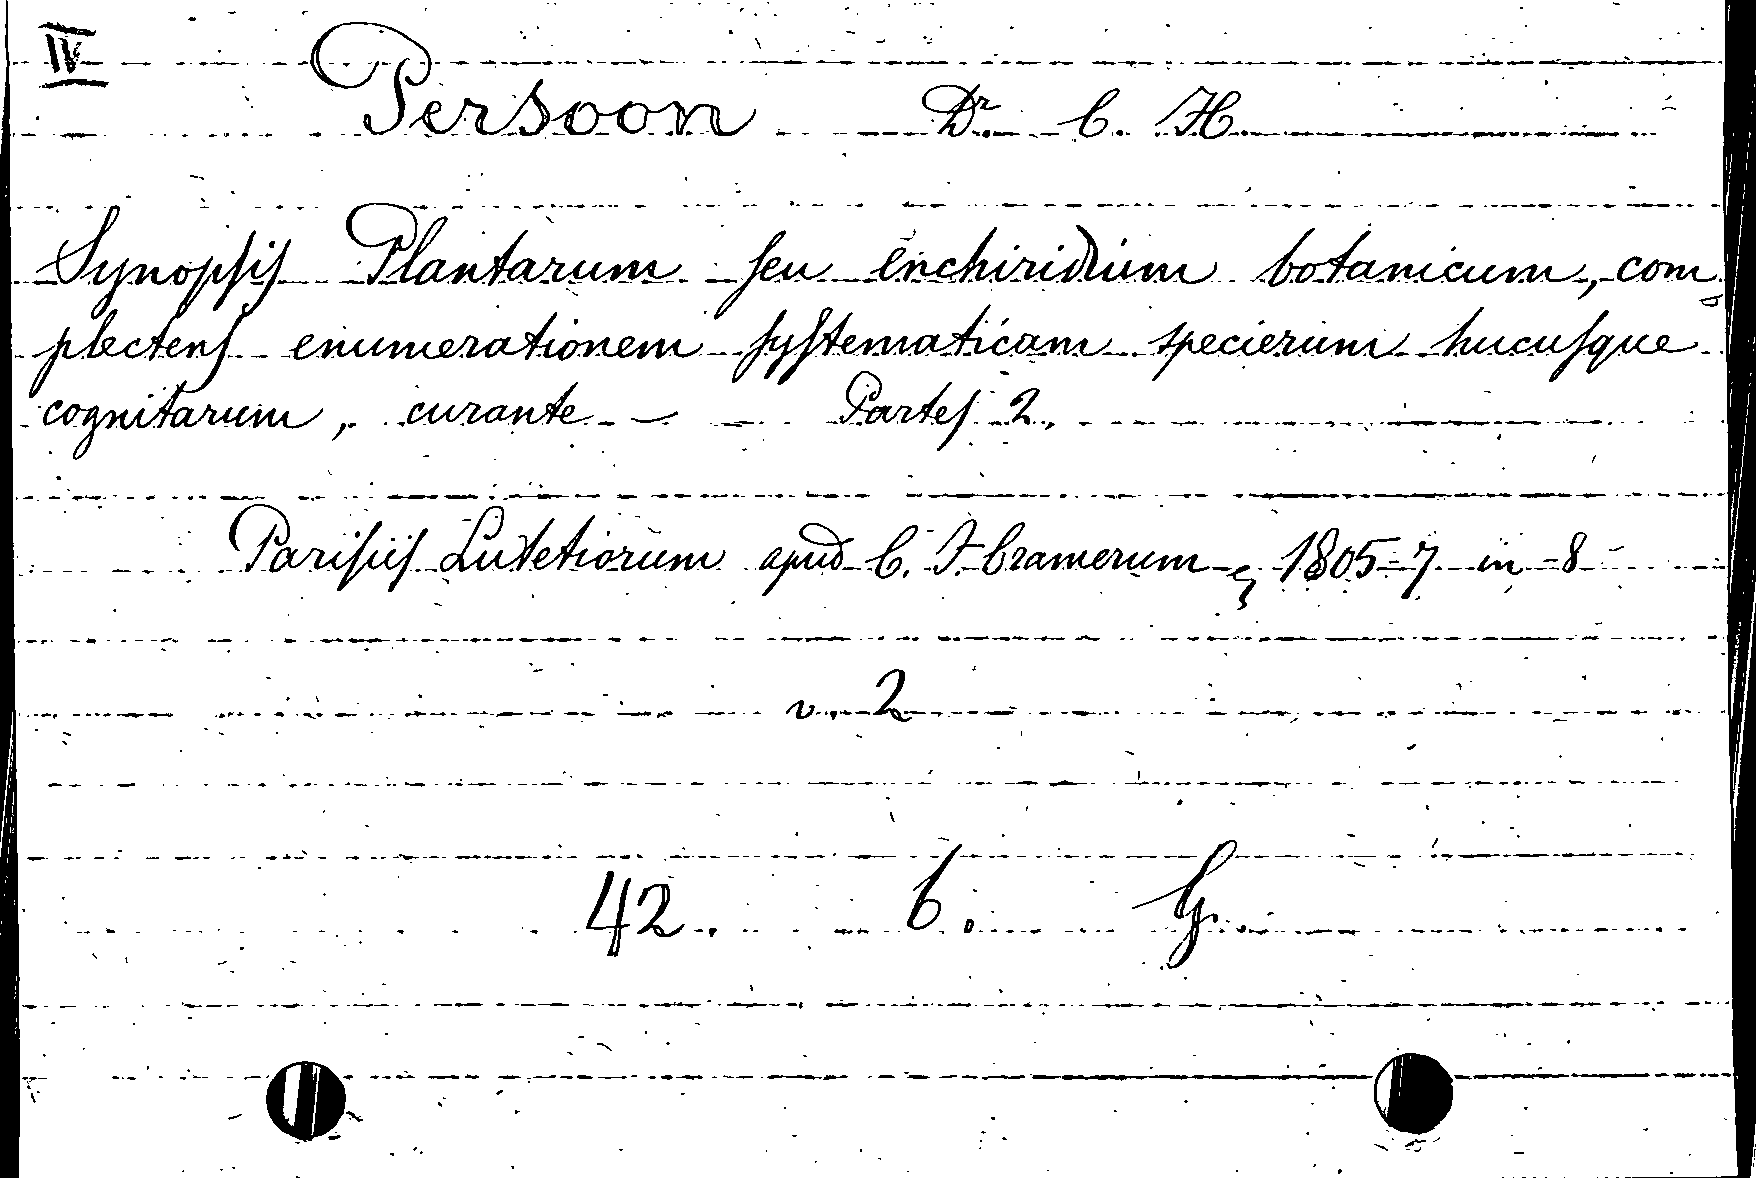 IV
Persoon Dr. C. H.
Synopsis Plantarum seu enchiridium botanicum, com
plectens enumerationem systematicam specierum hucusque
cognitarum, curante — Partes 2.
Parisiis Lutetiorum apud C. F. Cramerum, 1805-7 in-8
v. 2
42. 6. G.